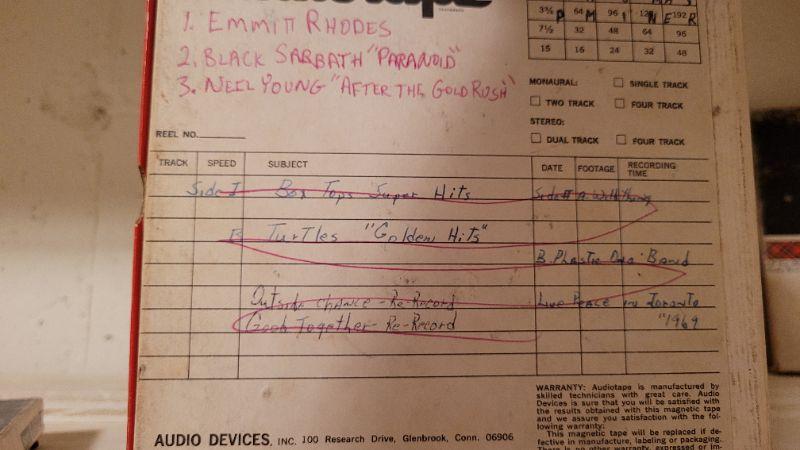 1. EMMITT RHODES
2. BLACK SABBATH "PARANOID"
3. NEIL YOUNG "AFTER THE GOLD RUSH"
3¾ 64 96 192
7½ 32 48 64 96
15 16 24 32 48
P M I N E R
MONAURAL: SINGLE TRACK
TWO TRACK FOUR TRACK
STEREO:
DUAL TRACK FOUR TRACK
REEL NO.
TRACK SPEED SUBJECT DATE FOOTAGE RECORDING TIME
Side I Box Tops Super Hits Side II A
B Turtles "Golden Hits"
B. Plastic Ono Band
Outside chance - Re-Record Live Peace in Toronto
Together - Re-Record "1969
AUDIO DEVICES, INC. 100 Research Drive, Glenbrook, Conn. 06906
WARRANTY: Audiotape is manufactured by
skilled technicians with great care. Audio
Devices is sure that you will be satisfied with
the results obtained with this magnetic tape
and we assure you satisfaction with the fol-
lowing warranty:
This magnetic tape will be replaced if de-
fective in manufacture, labeling or packaging.
There is no other warranty, expressed or im-